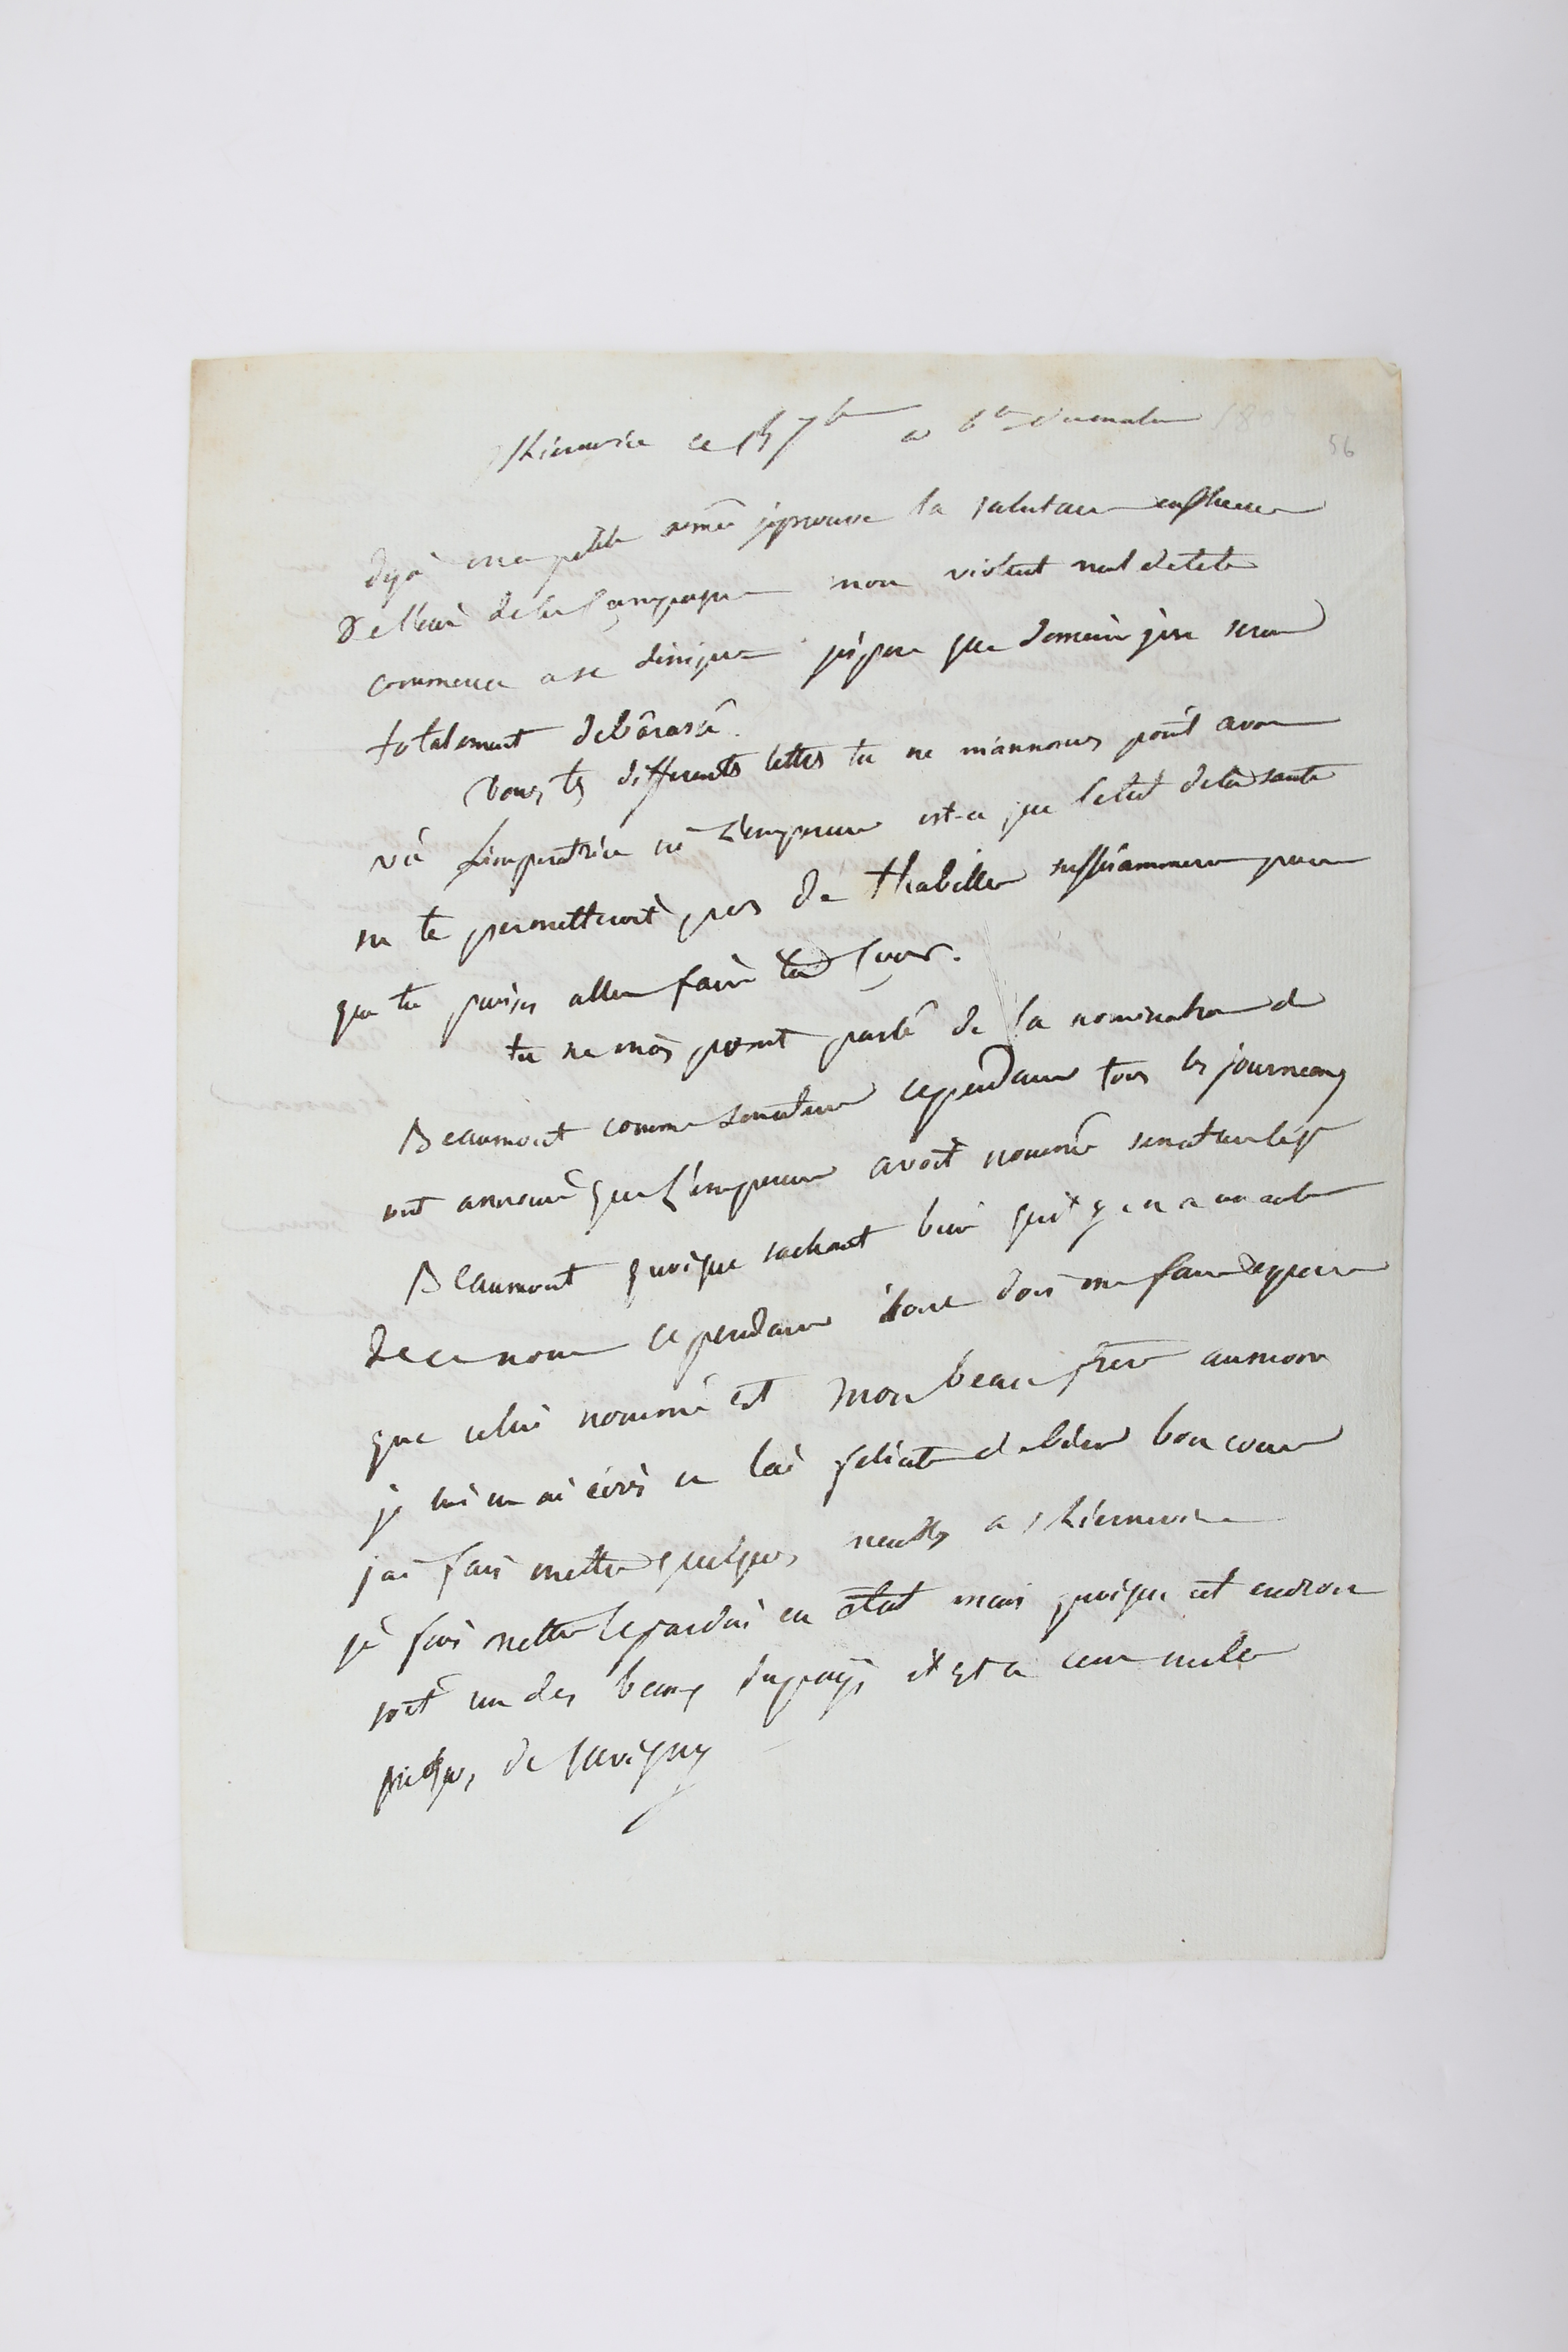 Skierniewice ce 15 7bre a 6h du matin 180
56
déjà ma petite aimée jéprouve la salutaire influence
de l'air de la Campagne mon violent mal de tete
commence a se dissiper jéspere que demain j'en serai
totalement débarassé.
Dans tes differents lettres tu ne m'annonces point avoir
vû L'imperatrice ni L'empereur est-ce que l'etat de ta santé
ne te permetteroit pas de t'habiller suffisamment pour
que tu puisses aller faire ta Cour.
tu ne m'as point parlé de la nomination de
Beaumont comme senateur cependant tous les journeaux
ont annoncé que L'empereur avoit nommé senateur le gl
Beaumont quoique sachant bien qu'il y en a un autre
de ce nom cependant tout dois me faire esperer
que celui nommé est mon beau frere au moins
je lui en ai écris en lui felicité de bien bon coeur
j'ai fais mettre quelques meubles a Skierniewice
je fais mettre le jardin en état mais quoique cet endroit
soit un des beaux du pays il y a cent mille
piques de Savigny